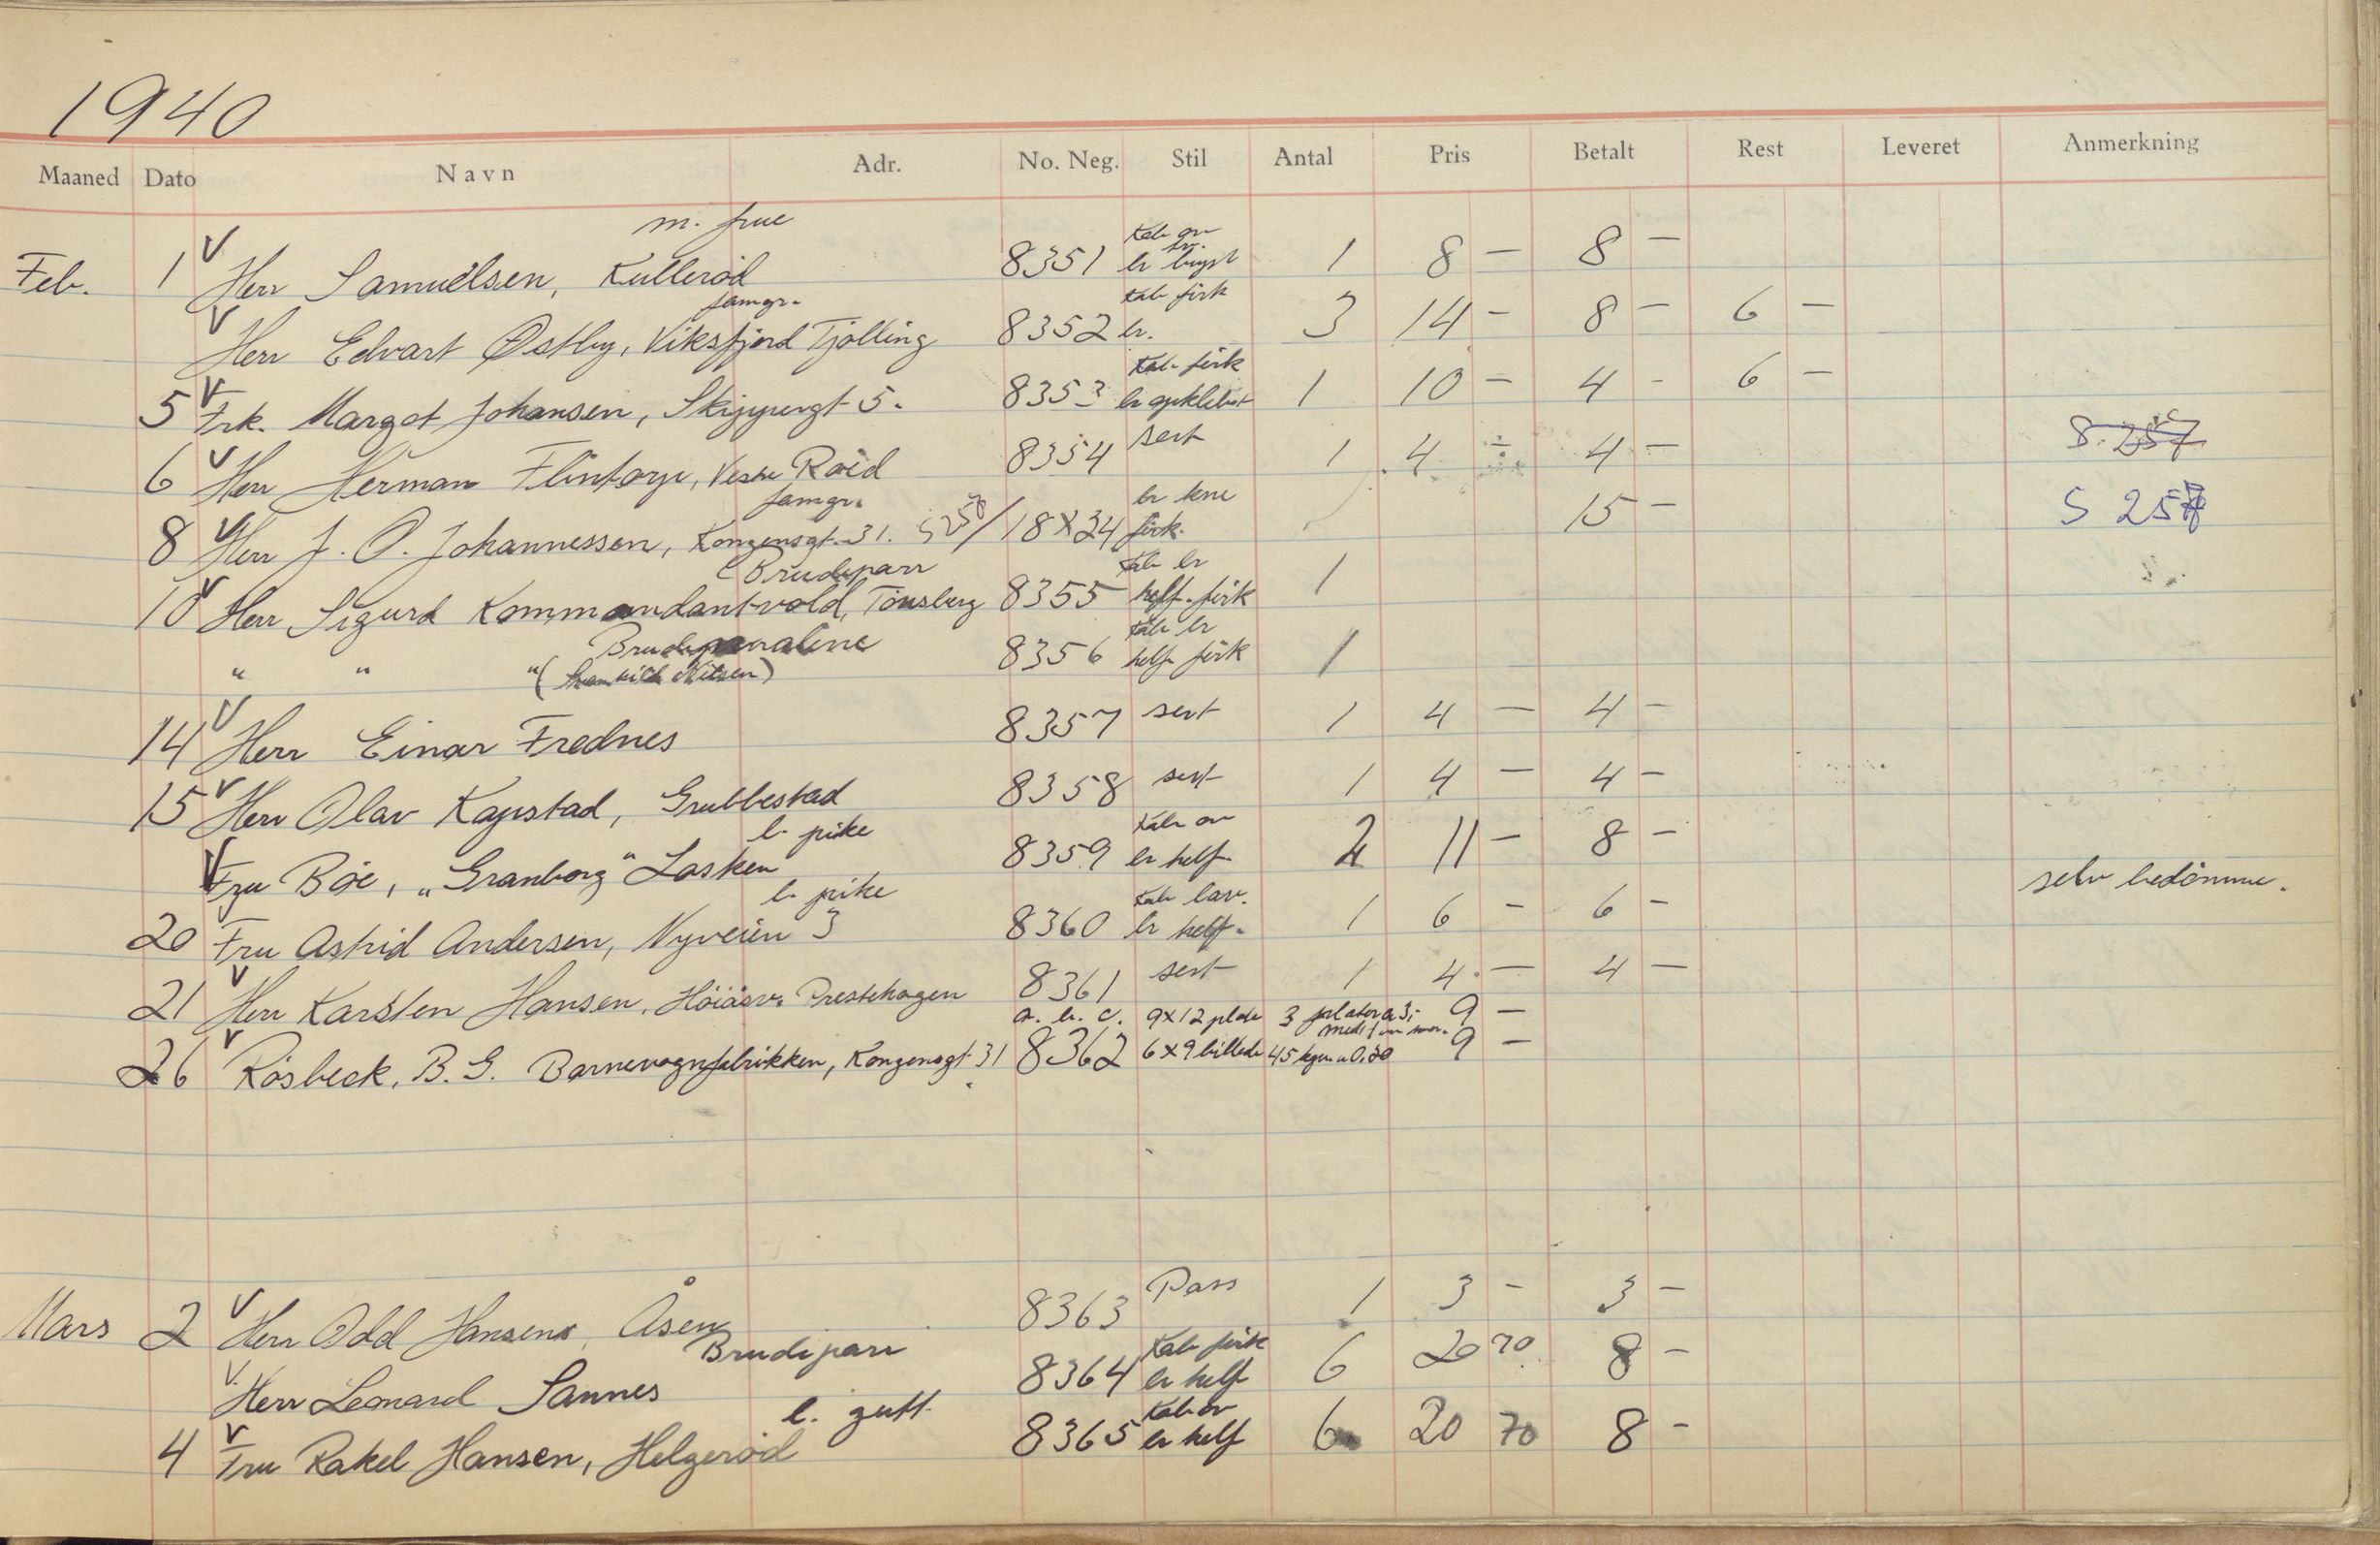 1940
Maaned Dato Navn Adr. No. Neg. Stil Antal Pris Betalt Rest Leveret Anmerkning
m. frue Kab. ov
Feb. 1 V Herr Samuelsen, Kullerød 8351 br. bryst 1 8 — 8 —
famgr. Kab firk
V Herr Edvart Østby, Viksfjord Tjølling 8352 br. 3 14 — 8 — 6 —
Kab. firk
5 V Frk. Margot Johansen, Skippergt 5. 8353 br 1 10 — 4 - 6 —
6 V Herr Herman Flintorp, Vestre Roed 8354 sert 1 4 ÷ 4 — S. 257
famgr. br kne
8 V Herr J. O. Johannessen, Kongensgt. 31. S 258 / 18 X 24 firk. 15 — S 257
Brudeparr Kab br
10 V Herr Sigurd Kommandantvold, Tönsberg 8355 helf. firk 1
Brudeparr alene Kab br
" " " ( Nilsen) 8356 helf firk 1
14 V Herr Einar Frednes 8357 sert 1 4 — 4 —
15 V Herr Olav Kapstad, Grubbestad 8358 sert 1 4 — 4 —
l. pike Kab ov
V Fru Böe, „Granborg" Lasken 8359 br helf. 2 11 — 8 —
l. pike Kab lav. selv bedömme.
20 Fru Astrid Andersen, Nyveien 3 8360 br helf. 1 6 — 6 —
21 V Herr Karsten Hansen, Höiåsv. Prestehagen 8361 sert 1 4. — 4 —
a. b. c. 9x12 plate 3 plater a 3,- 9 —
26 V Rösbeck, B. G. Barnevognfabrikken, Kongensgt 31 8362 6x9 billede 45 a 0,20 9 —
Mars 2 V Herr Odd Hansen, Åsen 8363 Pass 1 3 — 3 —
Brudeparr Kab firk
V. Herr Leonard Sannes 8364 br helf 6 20 70 8 —
l. gutt Kab ov
4 V Fru Rakel Hansen, Helgerød 8365 br helf 6 20 70 8 -